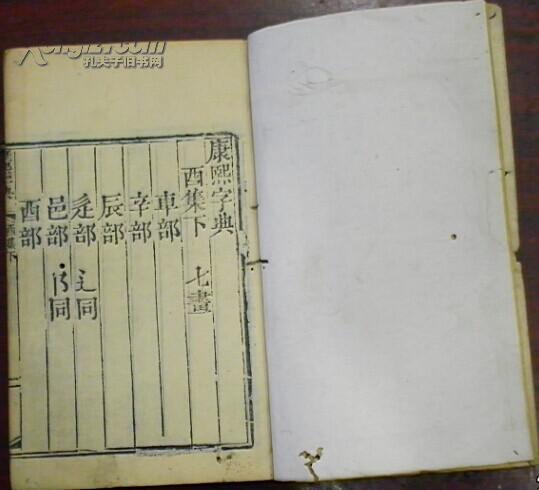 康熙字典
酉集下 七畫
車部
辛部
辰部
辵部 辶同
邑部 阝同
酉部
孔夫子旧书网